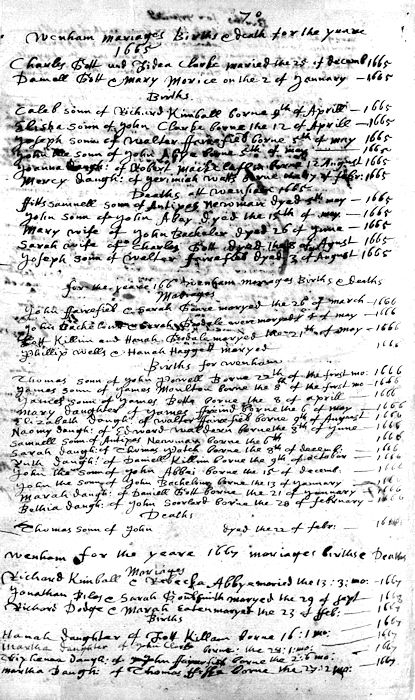 70
Wenham mariages Births & death for the yeare
1665
Charles Gott and Lidea Clarke maried the 25 of decemb 1665
Daniell Gott & Mary Morice on the 2 of January - 1665
Births.
Caleb sonn of Richard Kimball borne 9th of Aprill - 1665
Elisha sonn of John Clarke borne the 12 of Aprill - 1665
Joseph sonn of Walter ffairefield borne 5th of may - 1665
John the sonn of John Abye borne may - 1665
Joanna daugh: of Robert Mackclaflin borne 12 August 1665
Mercy daugh: of Jerimiah Watts borne the 7 of febr: 1665
Deaths att Wenham 1665
Samuell sonn of Antipas Newman dyed 5th may - 1665
John sonn of John Abey dyed the 15th of may. - 1665
Mary wife of John Bacheler dyed 26 of June - 1665
Sarah wife of Charles Gott dyed the August - 1665
Joseph sonn of Walter fairefield dyed 3 of August 1665
for the yeare 166 Wenham marriages Births & deaths
Mariages
John ffairefiel & Sarah maryed the 26 of march - 1666
John Bacheler & Sarah Goodale were maryed 4 of may - 1666
Lott Killim and Hanah Goodale maryed the 21th of may - 1666
Phillip Wells & Hanah Haggett maryed 1666
Births for wenham
Thomas sonn of John Powell Borne 22th of the first mo: 1666
James sonn of James Moulton borne the 8 of the first mo 1666
James sonn of James Betts borne the 8 of aprill 1666
Mary daughter of James borne the 6 of may 1666
Elizabeth daugh: of walter ffairefield borne of August 1666
Naomy daugh: of Edward Waldern borne 8th of June - 1666
Samuell sonn of Antipas Newman borne the 6th 1666
Sarah daugh: of Thomas Patch borne the 8th of decemb 1666
Ruth daugh: of Daniell Killim borne the 9th of october - 1666
John the sonn of John Abbai: borne the 15 of decemb. 1666
John the sonn of John Bachelour borne the 13 of January 1666
Marah daugh: of Daniell Gott borne the 21 of January 1666
Bethia daugh: of John borne the 28 of february 1666
Deaths
Thomas sonn of John dyed the 22 of febr: - 1666
Wenham for the yeare 1667 mariages births & Deathes
Mariages
Richard Kimball & Rebecka Abby maried the 13: 3: mo: - 1667
Jonathan Piley & Sarah maryed the 29 of sept - 1667
Richard Dodge & Marah Eaten maryed the 23 of ffeb: 1667
Births
Hanah daughter of Lott Killam borne 16: 1 mo: 1667
Martha daughter of John Clark borne: the 28: 1 mo: 1667
daugh: of John ffairefield borne the 2: 6 mo: 1667
Martha daugh: of Thomas borne the 27: 12 mo: 1667